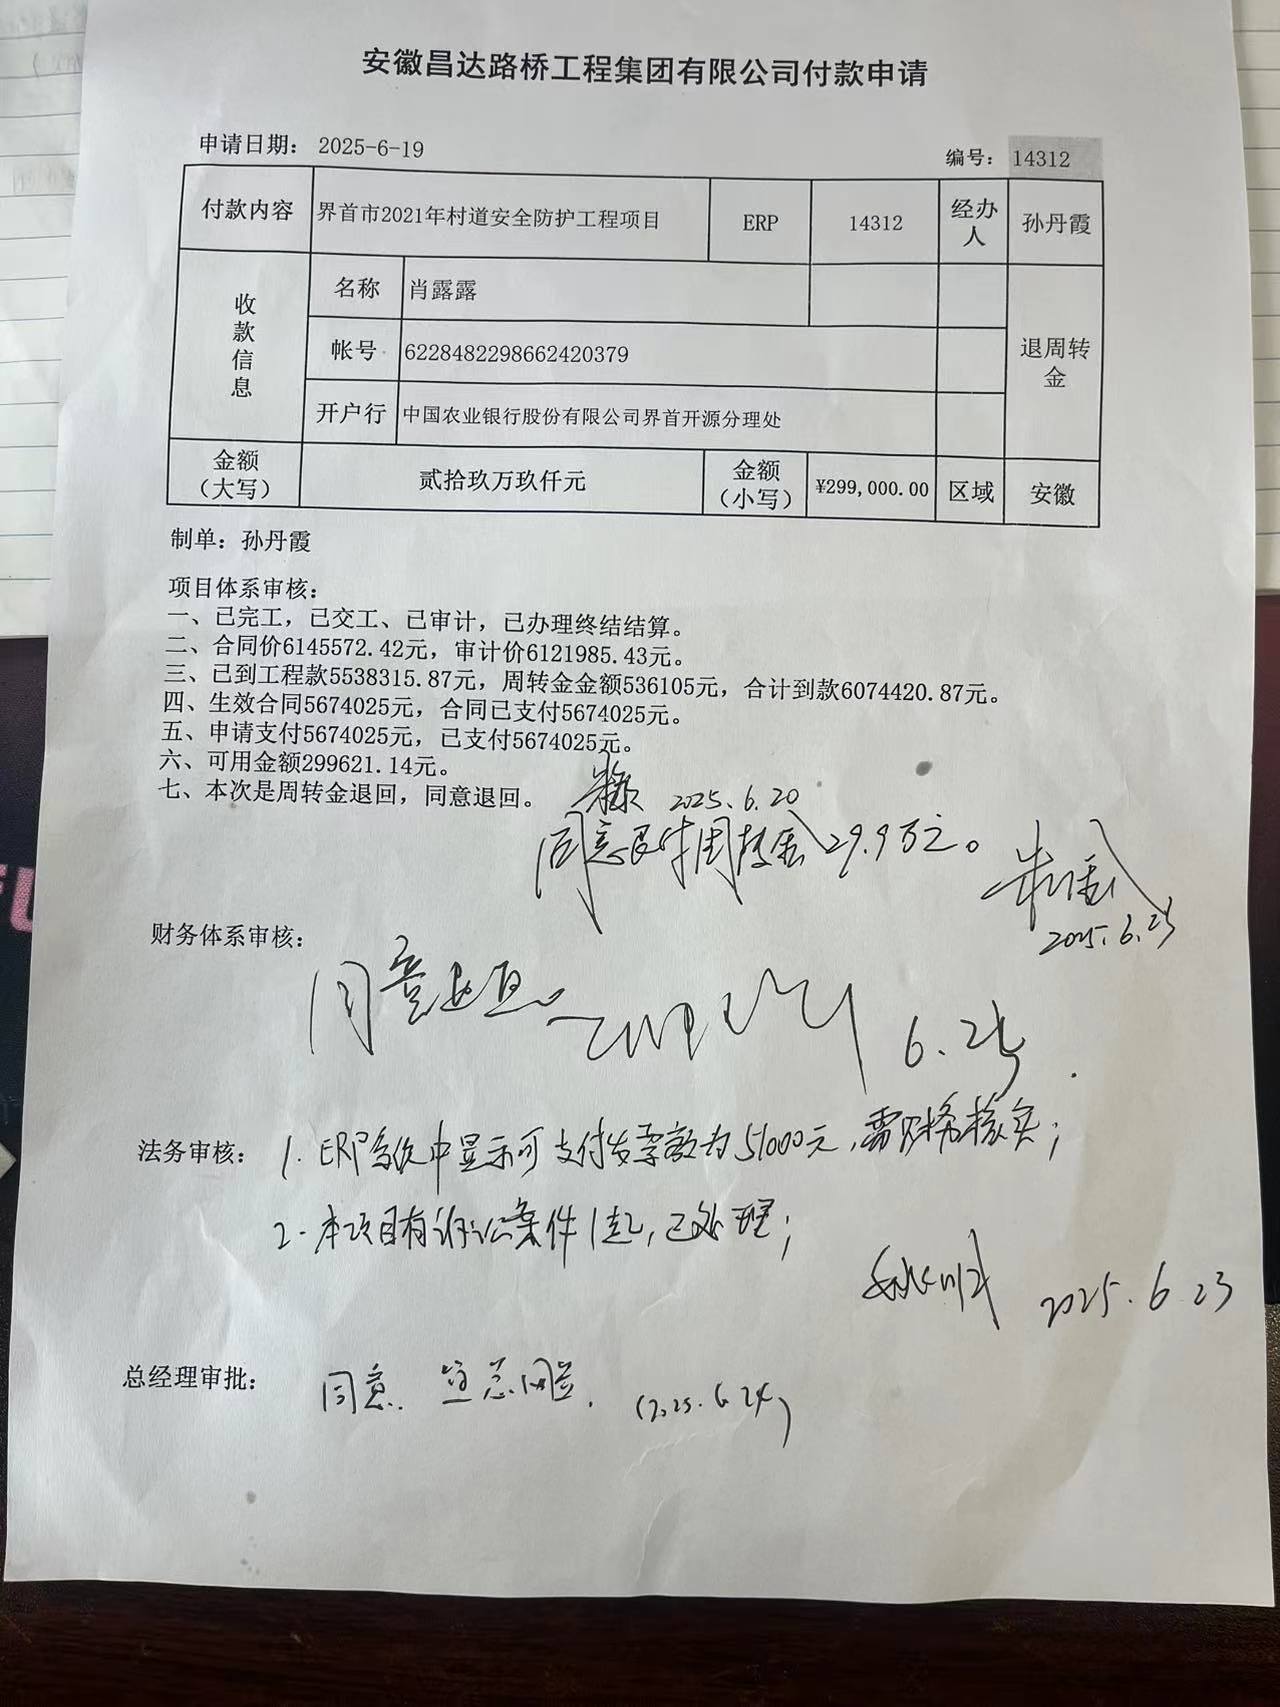 安徽昌达路桥工程集团有限公司付款申请
申请日期： 2025-6-19
编号： 14312
付款内容 界首市2021年村道安全防护工程项目 ERP 14312 经办人 孙丹霞
收款信息 名称 肖露露 退周转金
帐号 6228482298662420379
开户行 中国农业银行股份有限公司界首开源分理处
金额（大写） 贰拾玖万玖仟元 金额（小写） ¥299,000.00 区域 安徽
制单：孙丹霞
项目体系审核：
一、已完工，已交工、已审计，已办理终结结算。
二、合同价6145572.42元，审计价6121985.43元。
三、已到工程款5538315.87元，周转金金额536105元，合计到款6074420.87元。
四、生效合同5674025元，合同已支付5674025元。
五、申请支付5674025元，已支付5674025元。
六、可用金额299621.14元。
七、本次是周转金退回，同意退回。
2025.6.20
同意 周转金29.9万元。
2025.6.23
财务体系审核：
同意 6.25
法务审核： 1. ERP系统中显示可支付发票额为51000元，需财务核实；
2. 本项目有诉讼案件1起，已处理；
2025.6.23
总经理审批： 同意. (2025.6.24)